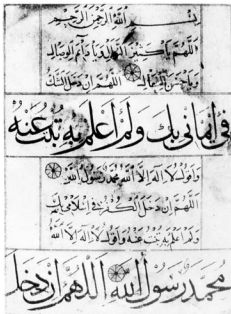 بسم الله الرحمن الرحيم
اللهم يا كثير النوال ويا دائم الوصال
ويا حسن الفعال اللهم ان دخل الشك
في ايماني بك ولم اعلم به تبت عنه
واقول لا اله الا الله محمد رسول الله
اللهم ان دخل الكفر في اسلامي بك
ولم اعلم به تبت عنه واقول لا اله الا الله
محمد رسول الله اللهم ان دخل